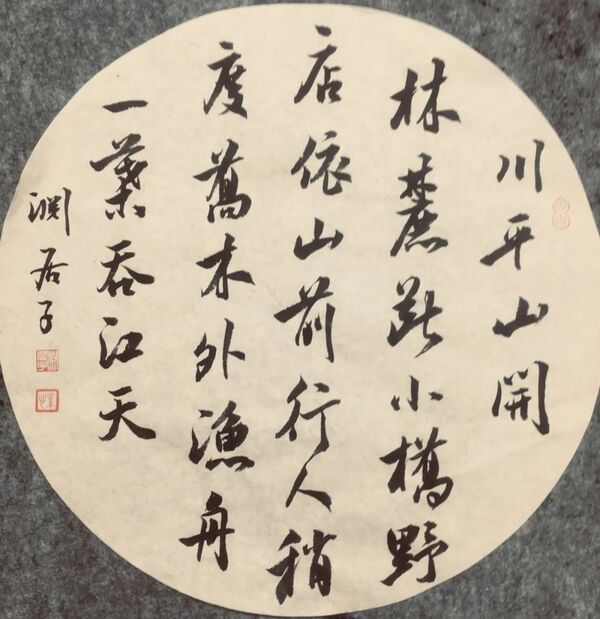 川平山開
林麓斷小橋野
店依山前行人稍
度喬木外漁舟
一葉吞江天
渕居子